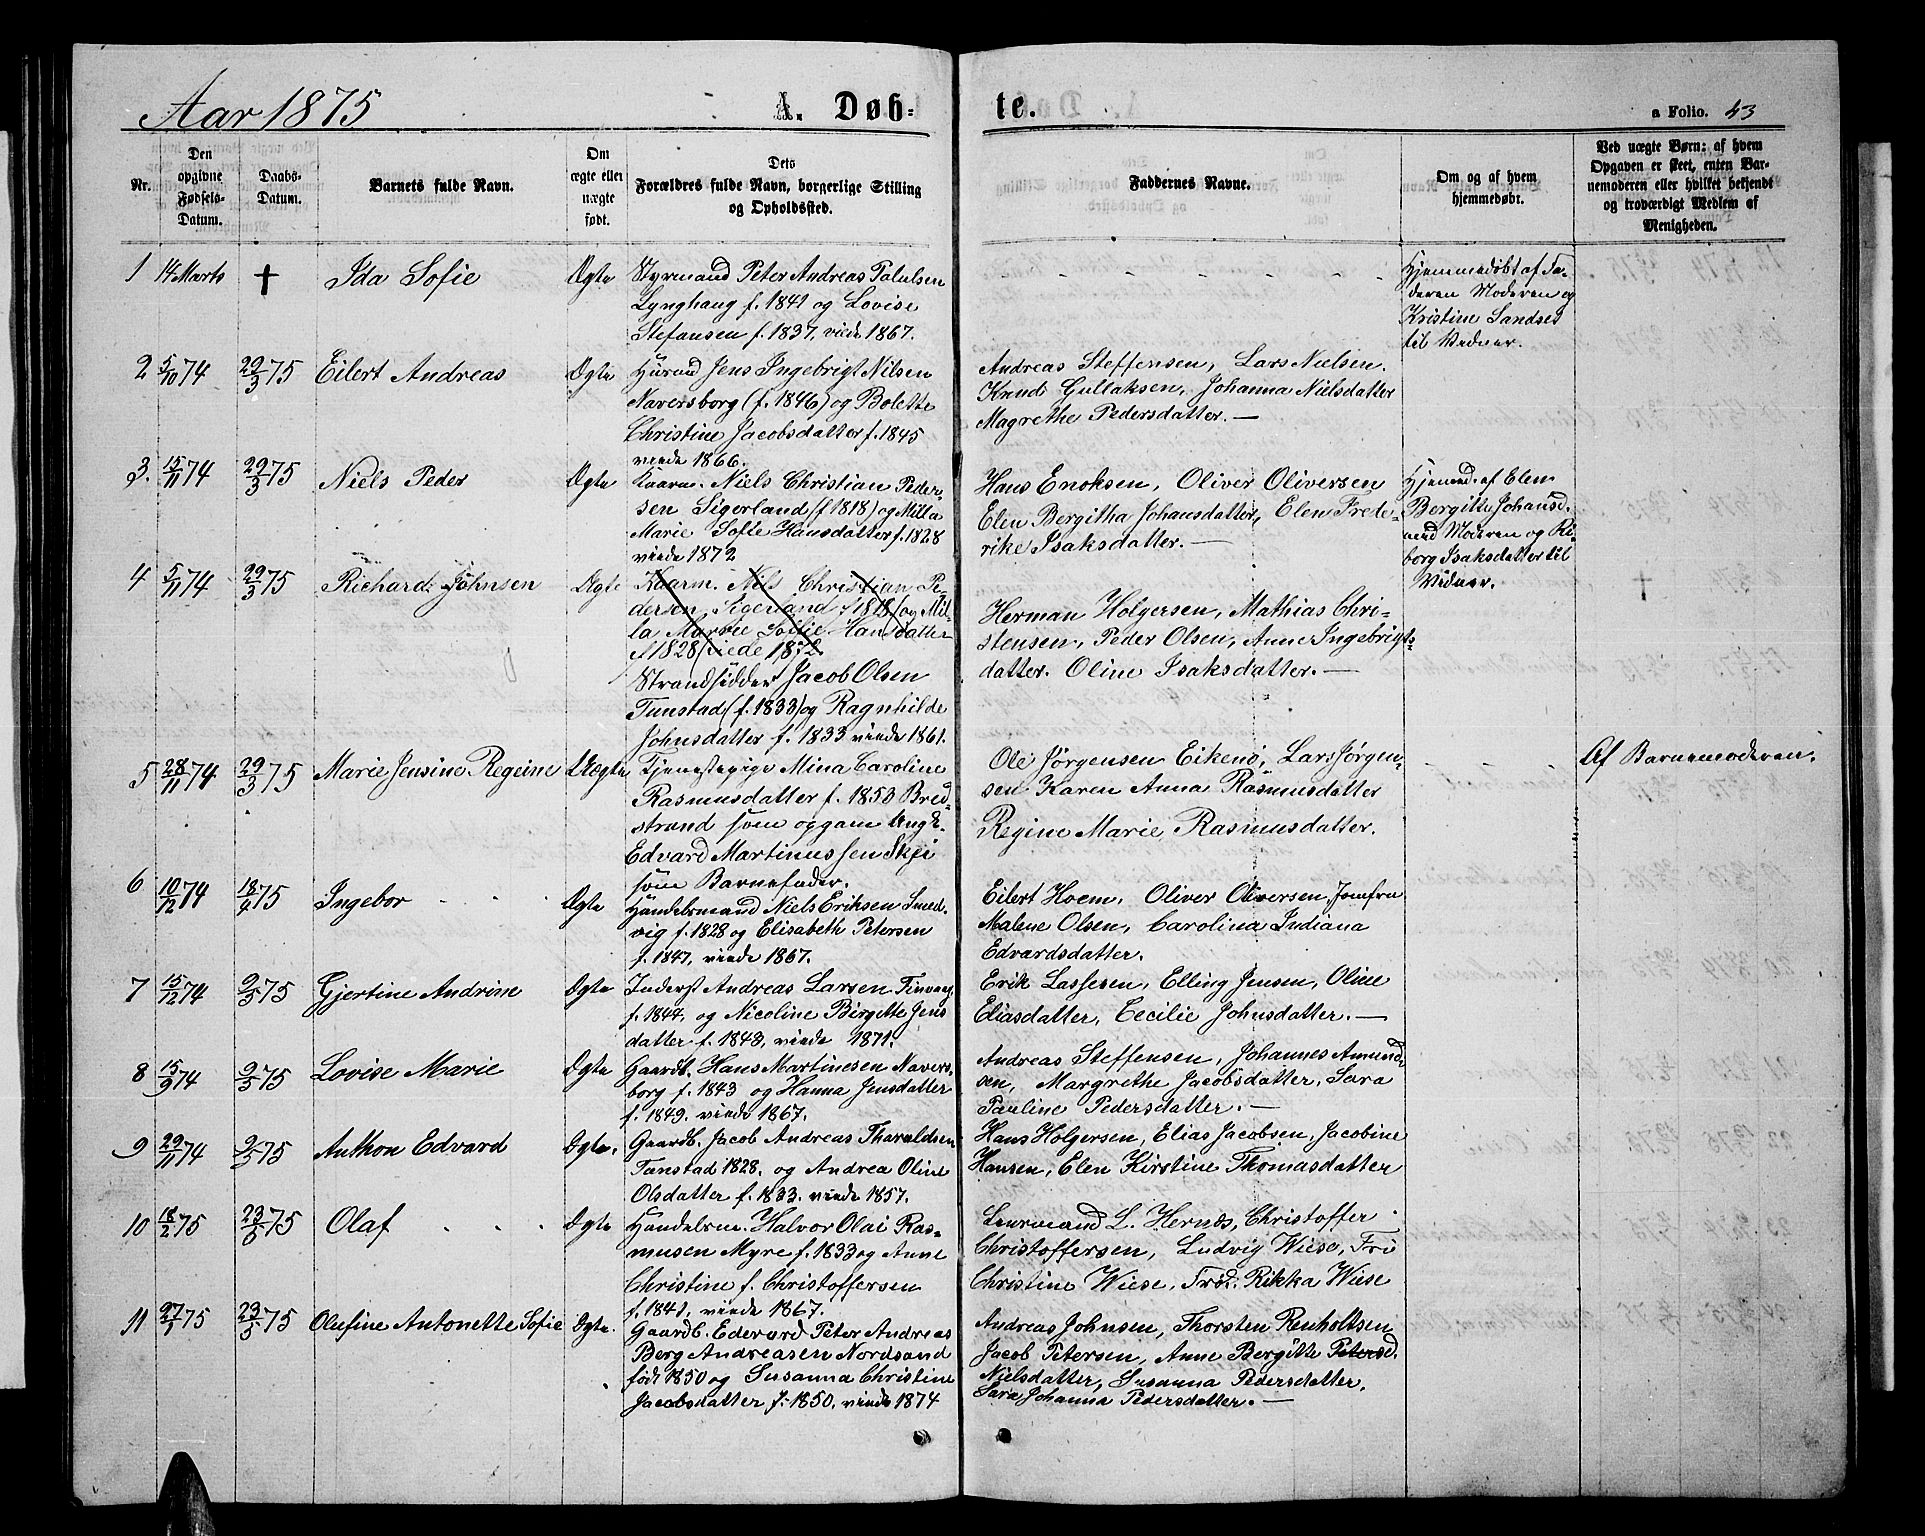 Aar 1875
A. Døb-
te.
a Folio. 43
Nr.
Den
opgivne
Fødsels-
Datum.
Daabs-
Datum.
Barnets fulde Navn.
Om
ægte eller
uægte
født.
Dets
Forældres fulde Navn, borgerlige Stilling
og Opholdssted.
Faddernes Navne.
Om og af hvem
hjemmedøbt.
Ved uægte Børn: af hvem
Opgaven er skeet, enten Bar-
nemoderen eller hvilket bekjendt
og troværdigt Medlem af
Menigheden.
1 14 Marts † Ida Sofie Ægte
Styrmand Peter Andreas Palulsen
Lynghaug f. 1841 og Lovise
Stefansen f. 1837, viede 1867.
Hjemmedøbt af Fa-
deren Moderen og
Kristine Sandses
til Vidner.
2 5/10 74 29/3 75 Eilert Andreas Ægte
Huusd Jens Ingebrigt Nilsen
Naversborg (f. 1846) og Bolette
Christine Jacobsdatter f. 1845
viede 1866.
Andreas Steffensen, Lars Nielsen.
Knud Gullaksen, Johanna Nielsdatter
Magrethe Pedersdatter. —
3. 15/11 74 29/3 75 Niels Peder Ægte
Kaarm. Niels Christian Peder-
sen Sigerland (f 1818) og Milla
Marie Sofie Hansdatter f. 1828
viede 1872
Hans Enoksen, Oliver Oliversen
Elen Bergitha Johansdatter, Elen Frede-
rike Isaksdatter. —
Hjemmd. af Elen
Bergitte Johansd.
med Moderen og Ri-
borg Isaksdatter til
Vidner.
4 5/11 74 29/3 75 Richard Johnsen Ægte
Kaarm. Nils Christian Pe-
dersen Sigerland f 1818 (og Mil-
la Marie Sofie Hansdatter
f 1828 (viede 1872
Strandsidder Jacob Olsen
Tunstad (f. 1833) og Ragnhilde
Johnsdatter f. 1833 viede 1861.
Herman Holgersen, Mathias Chri-
stensen, Peder Olsen, Anne Ingebrigts-
datter. Oline Isaksdatter. —
5 28/11 74 29/3 75 Marie Jensine Regine Uægte
Tjenestepige Mina Caroline
Rasmusdatter f. 1853 Bred-
strand som opgav Ungk.
Edvard Martinussen Skei
som Barnefader.
Ole Jørgensen Eikenø, Lars Jørgen-
sen Karen Anna Rasmusdatter
Regine Marie Rasmusdatter.
Af Barnemoderen.
6 10/12 74 18/4 75 Ingebor Ægte
Handelsmand Niels Eriksen Smed-
vig f. 1828 og Elisabeth Petersen
f. 1847, viede 1867.
Eilert Hoem, Oliver Oliversen, Jomfru
Malene Olsen, Carolina Indiana
Edvardsdatter.
7 15/12 74 9/5 75 Gjertine Andrine Ægte
Inderst Andreas Larsen Finvaag
f. 1844, og Nicoline Birgitte Jens
datter f. 1843, viede 1871.
Erik Lassesen, Elling Jensen, Oline
Eliasdatter, Cecilie Johnsdatter. —
8 15/9 74 9/5 75 Lovise Marie Ægte
Gaardb. Hans Martinesen Navers-
borg f. 1843 og Hanna Jensdatter
f. 1849. viede 1867.
Andreas Steffensen, Johannes Amund-
sen, Margrethe Jacobsdatter, Sara
Pauline Pedersdatter. —
9 29/11 74 9/5 75 Anthon Edvard Ægte.
Gaardb. Jacob Andreas Tharaldsen
Tunstad 1828. og Andrea Oline
Olsdatter f. 1833. viede 1857.
Hans Holgersen, Elias Jacobsen, Jacobine
Hansen, Elen Kirstine Thomasdatter
10 18/2 75 23/5 75 Olaf Ægte
Handelsm. Halvor Olai Ras-
musen Myre f. 1833 og Anne
Christine f. Christoffersen
f. 1841, viede 1867.
Lensmand L. Hernes, Christoffer
Christoffersen, Ludvig Wiese, Fru
Christine Wiese, Frøk. Rikka Wiese
11 27/1 75 23/5 75 Olufine Antonette Sofie Ægte.
Gaardb. Edevard Peter Andreas
Berg Andreasen Nordsand
født 1850 og Susanna Christine
Jacobsdatter f. 1850, viede 1874
Andreas Johnsen, Thorsten Renholtsen
Jacob Petersen, Anne Bergitte Petersd.
Nielsdatter, Susanna Pedersdatter,
Sara Johanna Pedersdatter. —